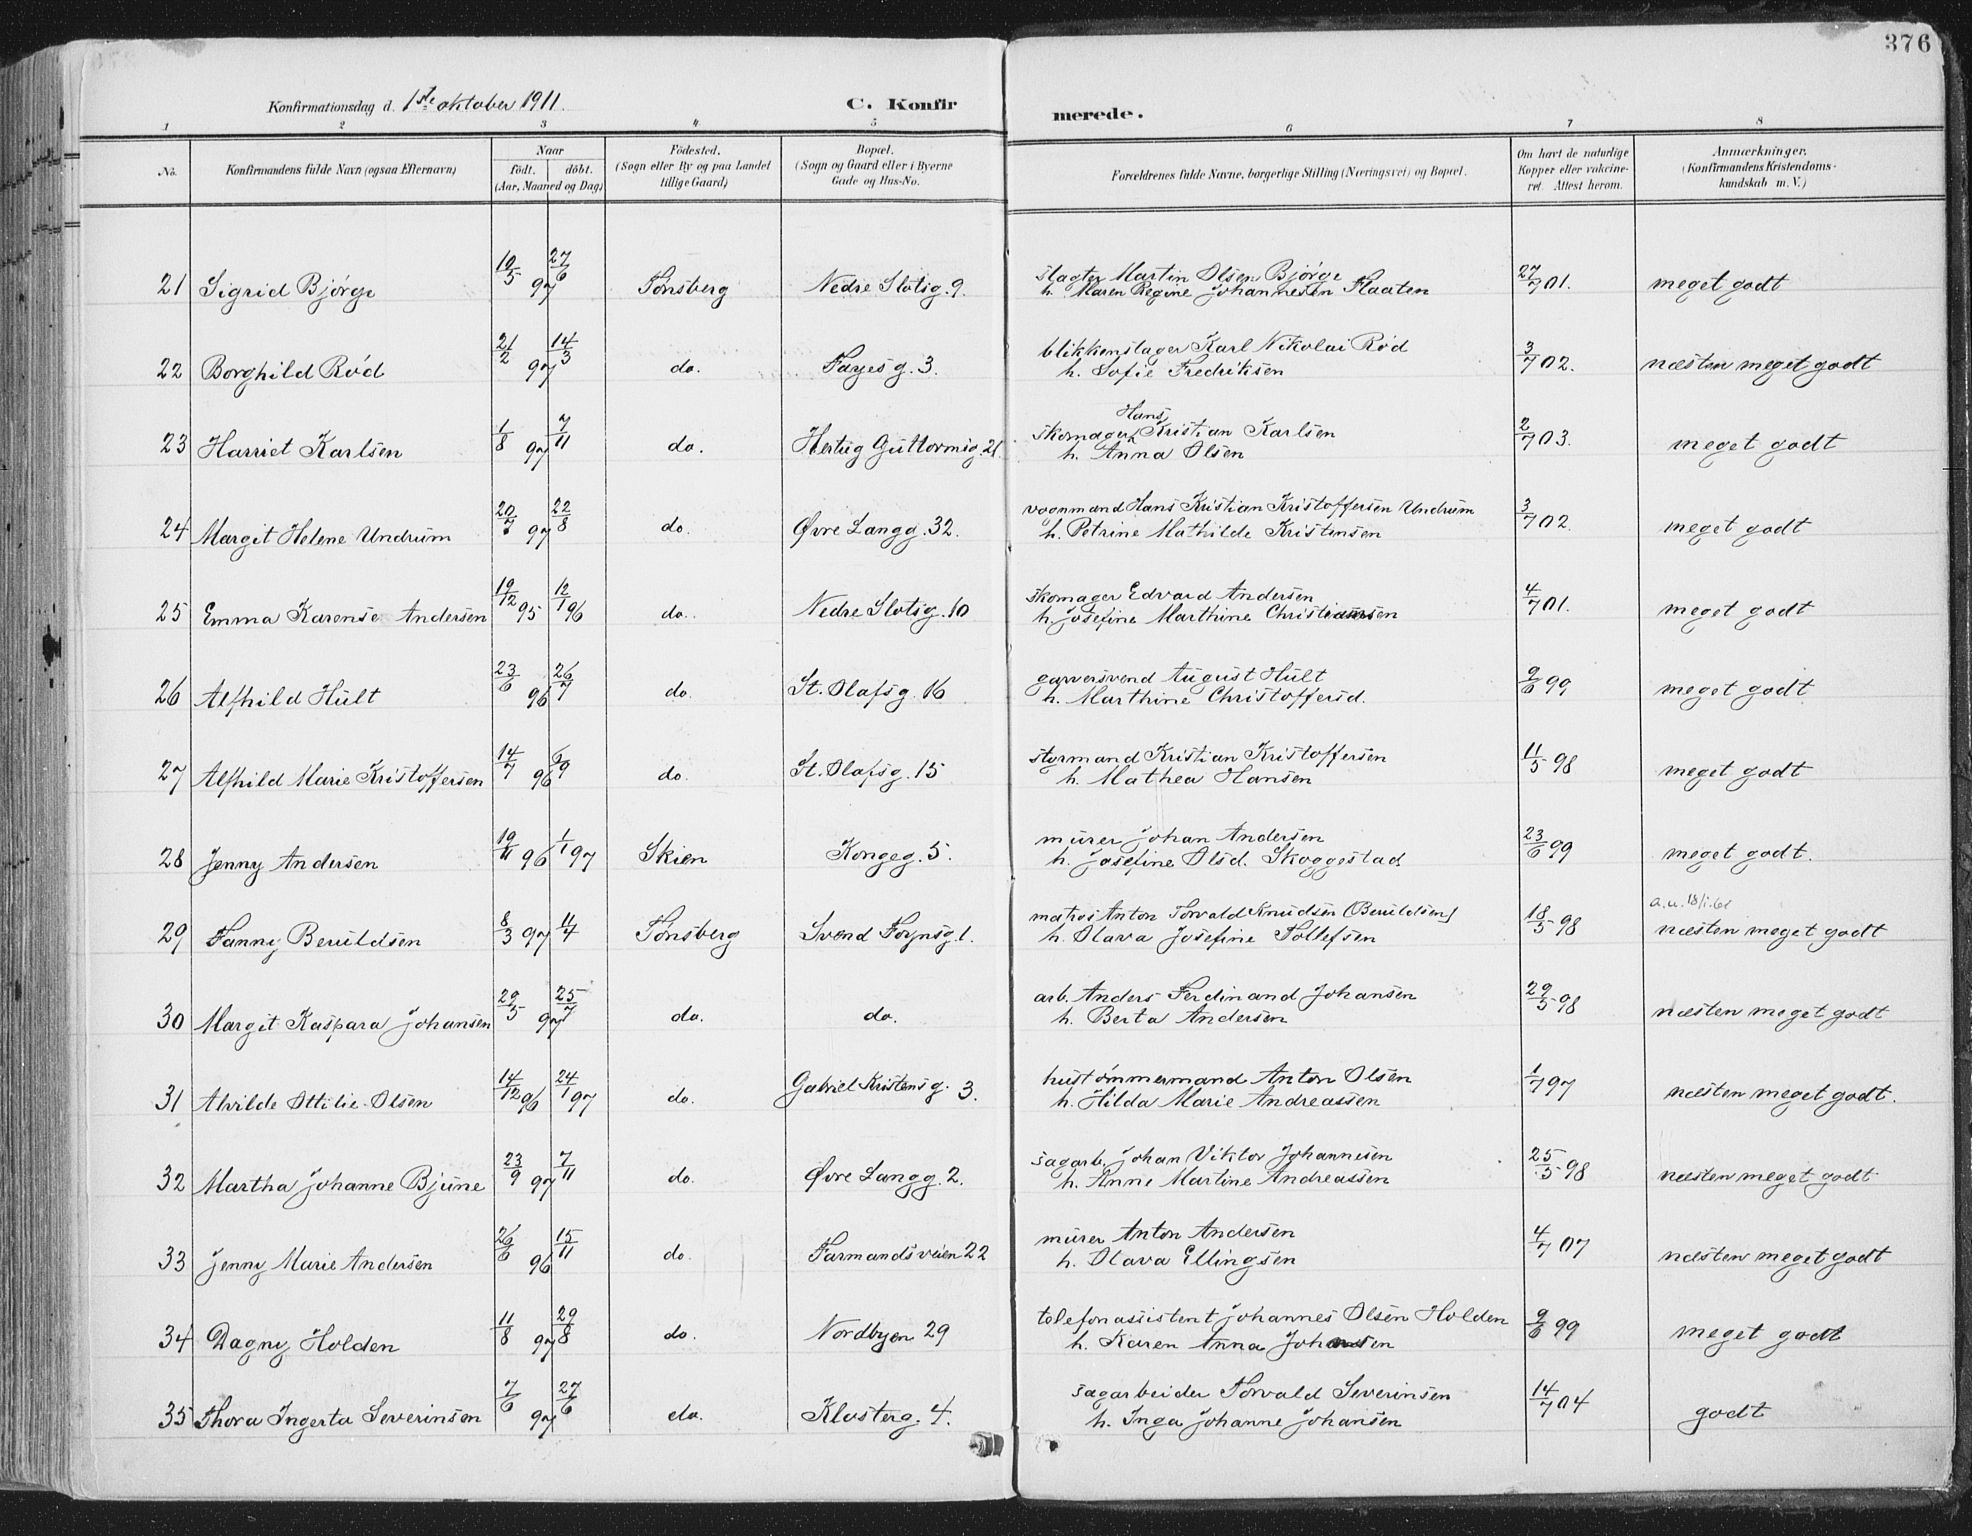 376
Konfirmationsdag d. 1ste oktober 1911.
C. Konfirmerede.
1 2 3 4 5 6 7 8
No. Konfirmandens fulde Navn (ogsaa Efternavn) Naar födt. döbt. (Aar, Maaned og Dag) Födested. (Sogn eller By og paa Landet tillige Gaard) Bopæl. (Sogn og Gaard eller i Byerne Gade og Hus-No. Forældrenes fulde Navne, borgerlige Stilling (Næringsvei) og Bopæl. Om havt de naturlige Kopper eller vakcineret. Attest herom. Anmærkninger. (Konfirmandens Kristendomskundskab m. V.)
21 Sigrid Bjørge 10/5 97 27/6 Tønsberg Nedre Slotsg. 9 slagter Martin Olsen Bjørge 27/7 01. meget godt
h. Maren Regine Johannesen Flaaten
22 Borghild Rød 21/2 97 14/3 do. Fayesg. 3. blikkenslager Karl Nikolai Rød 3/7 02. næsten meget godt
h. Sofie Fredriksen
23 Harriet Karlsen 1/8 97 7/11 do. Hertug Guttormsg. 21. skomager Hans Kristian Karlsen 2/7 03. meget godt
h. Anna Olsen
24 Margit Helene Undrum 20/7 97 22/8 do. Øvre Langg. 32. vognmand Hans Kristian Kristoffersen Undrum 3/7 02. meget godt
h. Petrine Mathilde Kristensen
25 Emma Karense Andersen 19/12 95 12/1 96 do. Nedre Slotsg. 10 skomager Edvard Andersen 4/7 01. meget godt
h. Josefine Marthine Christiansen
26 Alfhild Hult 23/6 96 26/7 do. St. Olafsg. 16 garversvend August Hult 9/6 99 meget godt
h. Marthine Christoffersd.
27 Alfhild Marie Kristoffersen 14/7 96 6/9 do. St. Olafsg. 15 styrmand Kristian Kristoffersen 11/5 98 meget godt
h. Mathea Hansen
28 Jenny Andersen 19/11 96 1/1 97 Skien Kongeg. 5. murer Johan Andersen 23/6 99 meget godt.
h. Josefine Olsd. Skoggestad
29 Fanny Beruldsen 8/3 97 4/4 Tønsberg Svend Foynsg. 1. matros Anton Torvald Knudsen (Beruldsen) 18/5 98 a.u. 18/1.61
h. Olava Josefine Tollefsen næsten meget godt
30 Margit Kaspara Johansen 29/5 97 25/7 do. do. arb. Anders Ferdinand Johansen 29/5 98 næsten meget godt
h. Berta Andersen
31 Alvilde Ottilie Olsen 14/12 96 24/1 97 do. Gabriel Kristensg. 3. hustømmermand Anton Olsen 1/7 97 næsten meget godt.
h. Hilda Marie Andreassen
32 Martha Johanne Bjune 23/9 97 7/11 do. Øvre Langg. 2. sagarb. Johan Viktor Johannesen 25/5 98 næsten meget godt
h. Anne Martine Andreassen
33 Jenny Marie Andersen 26/6 96 15/11 do. Farmandsveien 22 murer Anton Andersen 4/7 07 næsten meget godt
h. Olava Ellingsen
34 Dagny Holden 11/8 97 29/8 do. Nordbyen 29 telefonassistent Johannes Olsen Holden 9/6 99 meget godt
h. Karen Anna Johansen
35 Thora Ingerta Severinsen 7/6 97 27/6 do. Klosterg. 4. sagarbeider Torvald Severinsen 14/7 04 godt
h. Inga Johanne Johansen